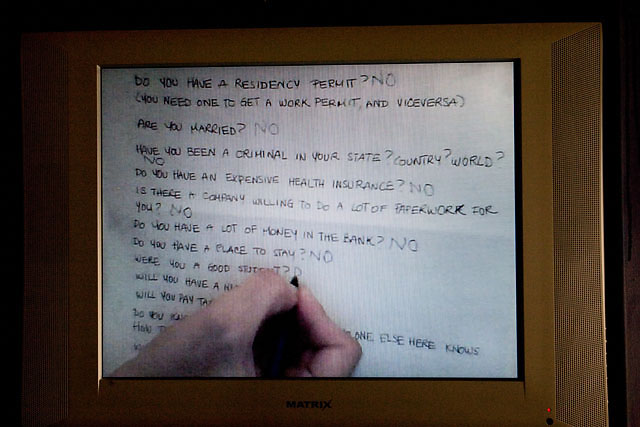 DO YOU HAVE A RESIDENCY PERMIT? NO
(YOU NEED ONE TO GET A WORK PERMIT, AND VICEVERSA)
ARE YOU MARRIED? NO
HAVE YOU BEEN A CRIMINAL IN YOUR STATE? COUNTRY? WORLD?
NO
DO YOU HAVE AN EXPENSIVE HEALTH INSURANCE? NO
IS THERE A COMPANY WILLING TO DO A LOT OF PAPERWORK FOR
YOU? NO
DO YOU HAVE A LOT OF MONEY IN THE BANK? NO
DO YOU HAVE A PLACE TO STAY? NO
WERE YOU A GOOD STUDENT?
WILL YOU HAVE A
WILL YOU PAY
DO YOU
ONE ELSE HERE KNOWS
MATRIX